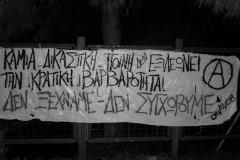 ΚΑΜΙΑ ΔΙΚΑΣΤΙΚΗ ΠΟΙΝΗ ΔΕΝ ΞΕΠΛΕΝΕΙ
ΤΗΝ ΚΡΑΤΙΚΗ ΒΑΡΒΑΡΟΤΗΤΑ
ΔΕΝ ΞΕΧΝΑΜΕ - ΔΕΝ ΣΥΓΧΩΡΟΥΜΕ